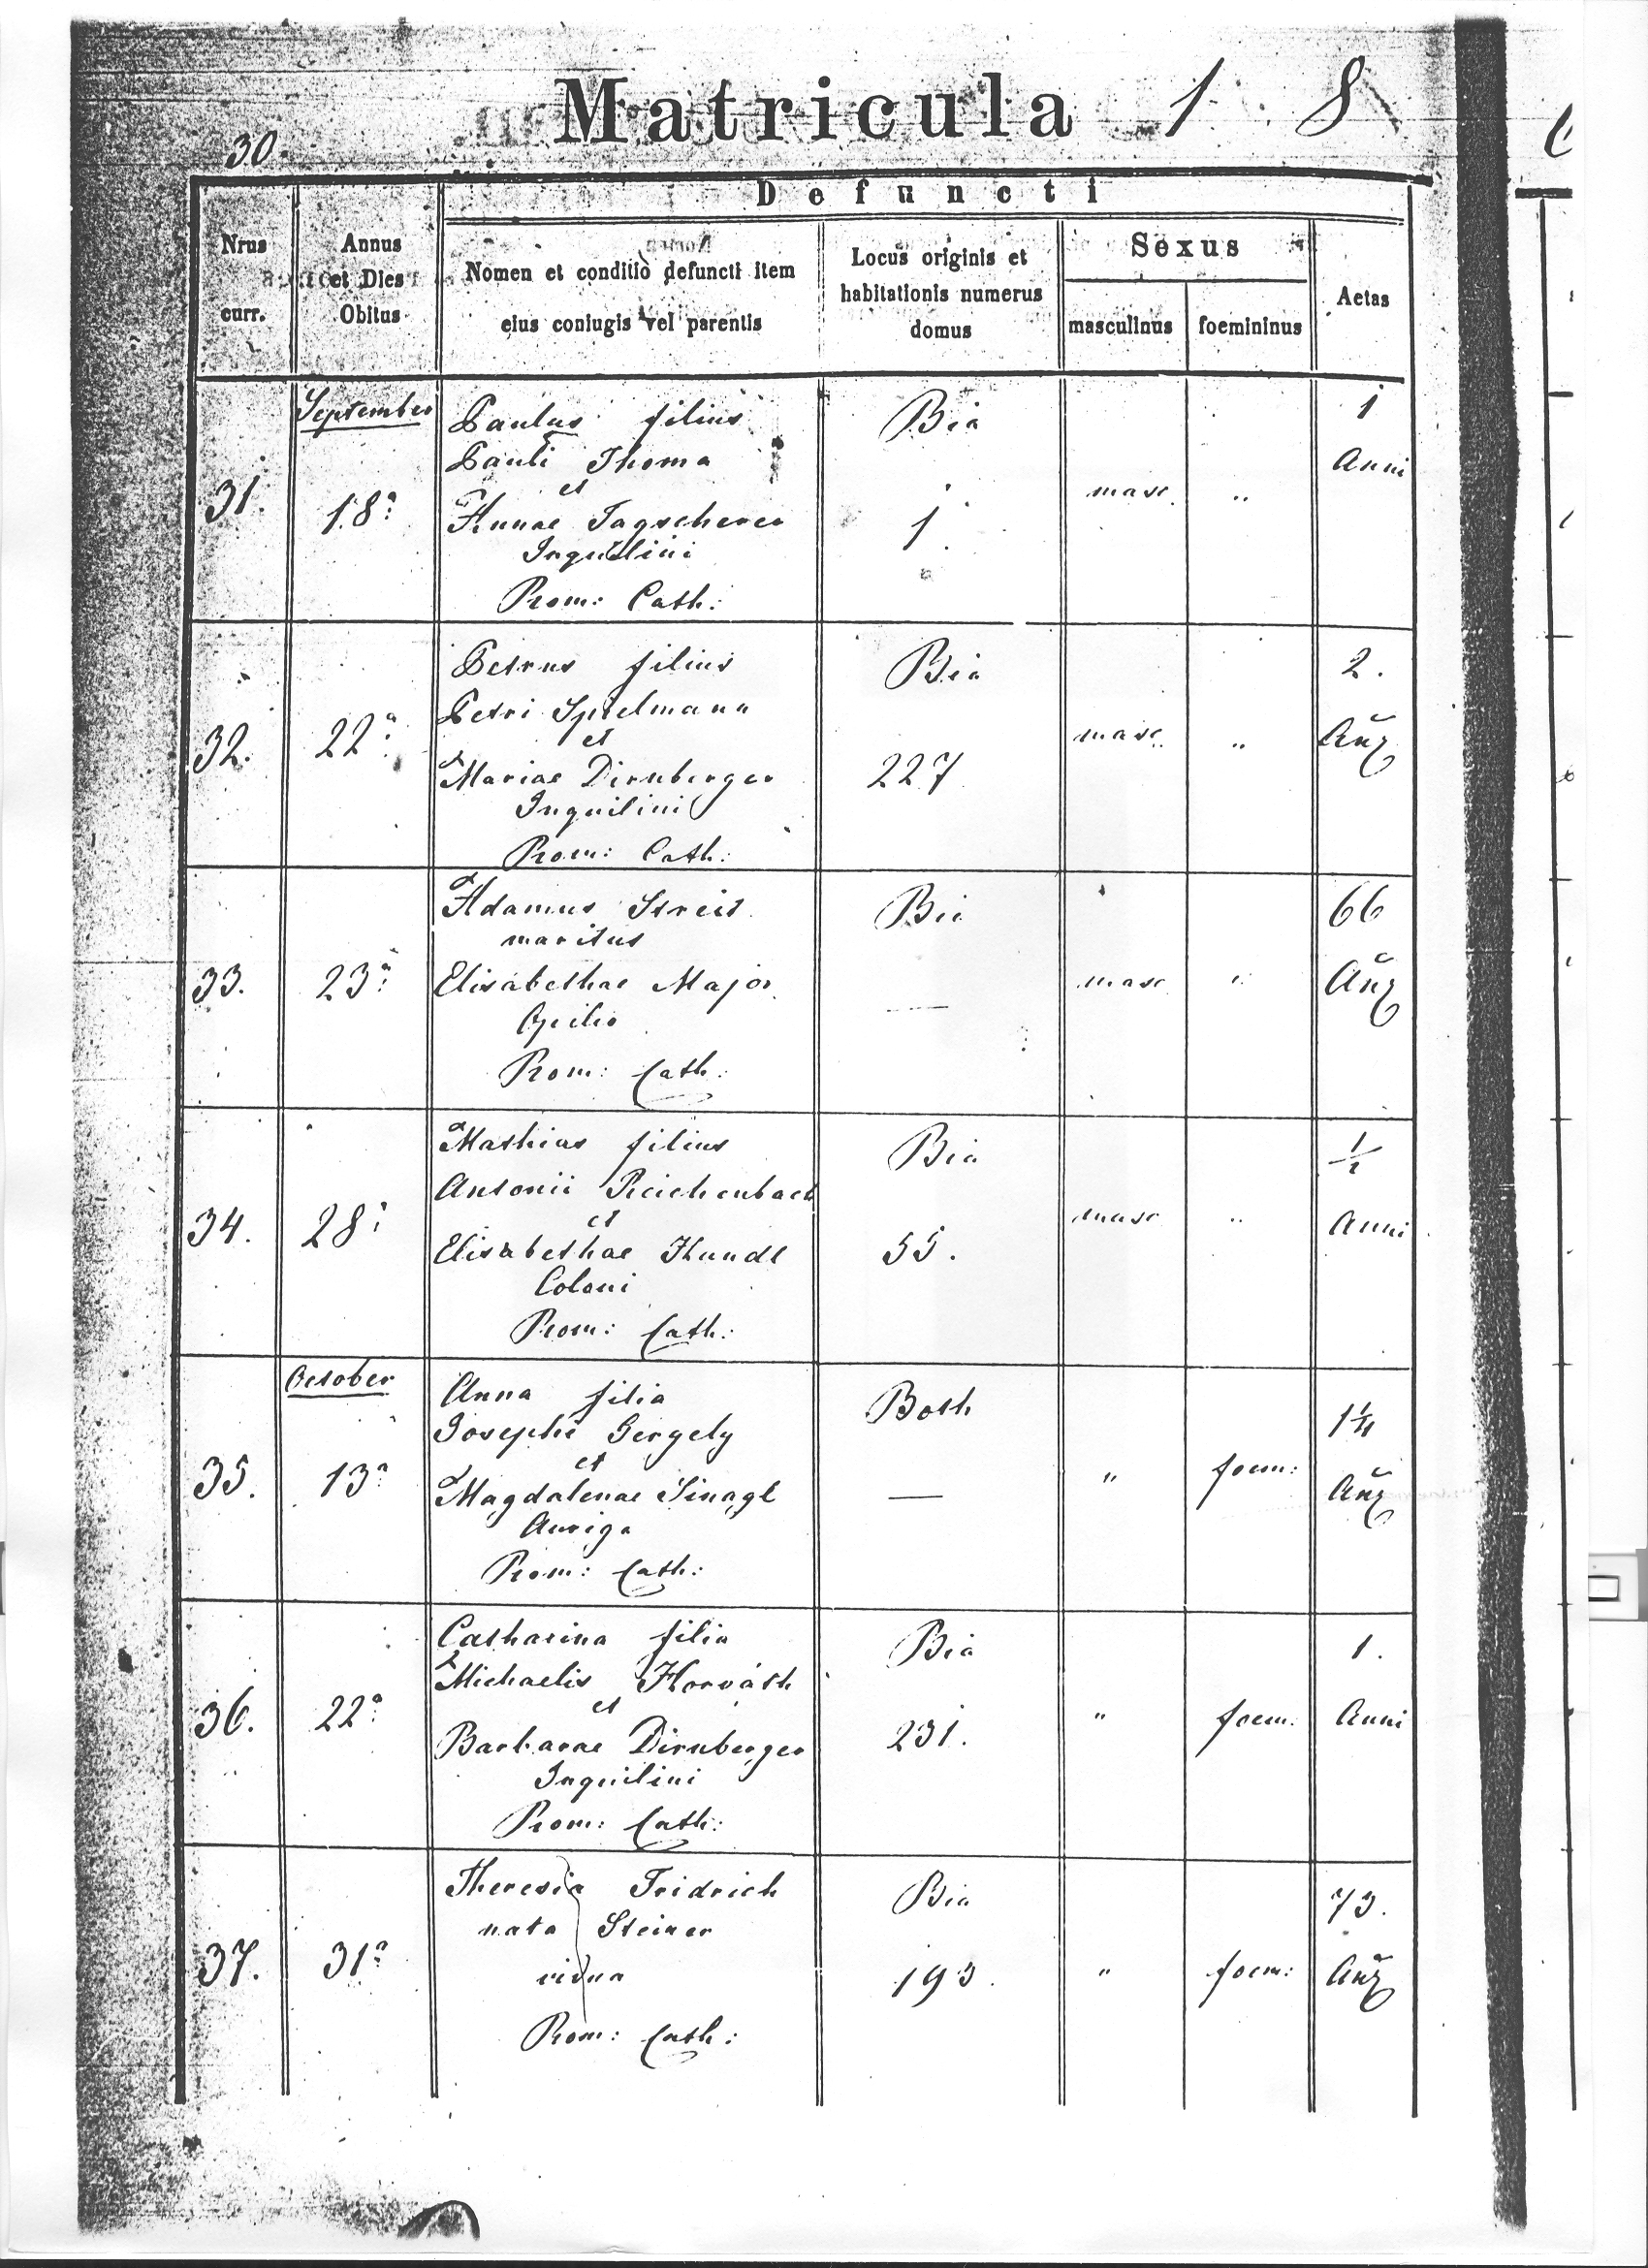 Matricula 1 8
30.
Defuncti
Nrus curr.
Annus et Dies Obitus
Nomen et conditio defuncti item eius coniugis vel parentis
Locus originis et habitationis numerus domus
Sexus
masculinus
foemininus
Aetas
September
31.
18ª
Paulus filius
Pauli Thoma
et
Annae Tagscherer
Inquilini
Rom: Cath:
Bia
1.
masc.
"
1
Anni
32.
22ª
Petrus filius
Petri Spielmann
et
Mariae Dirnberger
Inquilini
Rom: Cath:
Bia
227
masc.
"
2.
33.
23ª
Adamus Streit
maritus
Elisabethae Major
Opilio
Rom: Cath:
Bia
—
masc
"
66
34.
28ª
Mathias filius
Antonii Reichenbach
et
Elisabethae Hundl
Coloni
Rom: Cath:
Bia
55.
masc
"
1/2
Anni
October
35.
13ª
Anna filia
Josephi Gergely
et
Magdalenae Sinagl
Auriga
Rom: Cath:
Both
—
"
foem:
1¼
36.
22ª
Catharina filia
Michaelis Horváth
et
Barbarae Dirnberger
Inquilini
Rom: Cath:
Bia
231.
"
foem:
1.
Anni
37.
31ª
Theresia Fridrich
nata Steiner
vidua
Rom: Cath:
Bia
193.
"
foem:
73.